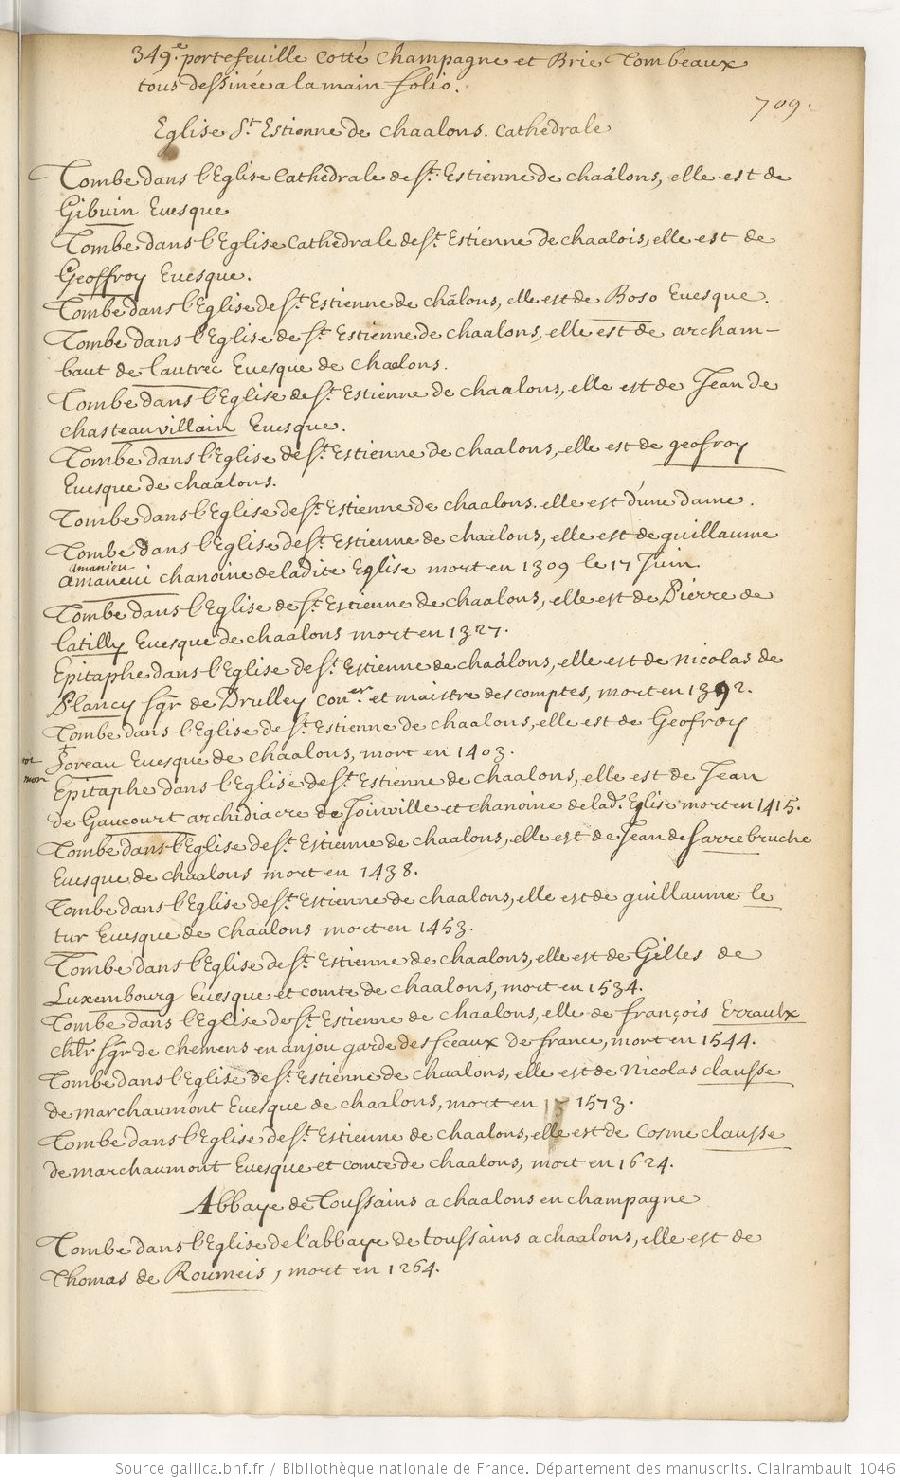 349.e portefeuille cotté Champagne et Brie Tombeaux
tous dessinée a la main folio.
709.
Eglise St. Estienne de chaalons. cathedrale
Tombe dans l'Eglise Cathedrale de St. Estienne de chaálons, elle est de
Gibuin Euesque
Tombe dans l'Eglise Cathedrale de St. Estienne de chaalois, elle est de
Geoffroy Euesque.
Tombe dans l'Eglise de St. Estienne de châlons, elle est de Boso Euesque.
Tombe dans l'Eglise de St. Estienne de chaalons, elle est de archam-
baut de lautrec Euesque de chaalons.
Tombe dans l'Eglise de St. Estienne de chaalons, elle est de Jean de
chasteauvillain Euesque.
Tombe dans l'Eglise de St. Estienne de chaalons, elle est de geofroy
Euesque de chaalons.
Tombe dans l'Eglise de St. Estienne de chaalons. elle est d'une dame.
Tombe dans l'Eglise de St. Estienne de chaalons, elle est de guillaume
amanieu
amaneui chanoine de ladite Eglise mort en 1309 le 17 Juin.
Tombe dans l'Eglise de St. Estienne de chaalons, elle est de Pierre de
latilly Euesque de chaalons mort en 1327.
Epitaphe dans l'Eglise de St. Estienne de chaálons, elle est de Nicolas de
Plancy sgr. de Drulley con.er et maistre des comptes, mort en 1392.
Tombe dans l'Eglise de St. Estienne de chaalons, elle est de Geofroy
Soreau Euesque de chaalons, mort en 1403.
Epitaphe dans l'Eglise de St. Estienne de chaalons, elle est de Jean
de Gaucourt archidiacre de Joinville et chanoine de lad. Eglise mort en 1415.
Tombe dans l'Eglise de St. Estienne de chaalons, elle est de Jean de Sarrebruche
Euesque de chaalons mort en 1438.
Tombe dans l'Eglise de St. Estienne de chaalons, elle est de guillaume le
tur Euesque de chaalons mort en 1453.
Tombe dans l'Eglise de St. Estienne de chaalons, elle est de Gilles de
Luxembourg Euesque et comte de chaalons, mort en 1534.
Tombe dans l'Eglise de St. Estienne de chaalons, elle de françois Erraulx
chlr sgr de chemens en anjou garde des sceaux de france, mort en 1544.
Tombe dans l'Eglise de St. Estienne de chaalons, elle est de Nicolas clausse
de marchaumont Euesque de chaalons, mort en 1573.
Tombe dans l'Eglise de St. Estienne de chaalons, elle est de Cosme clausse
de marchaumont Euesque et comte de chaalons, mort en 1624.
Abbaye de Toussains a chaalons en champagne
Tombe dans l'Eglise de l'abbaye de toussains a chaalons, elle est de
Thomas de Roumeis, mort en 1264.
Source gallica.bnf.fr / Bibliothèque nationale de France. Département des manuscrits. Clairambault 1046